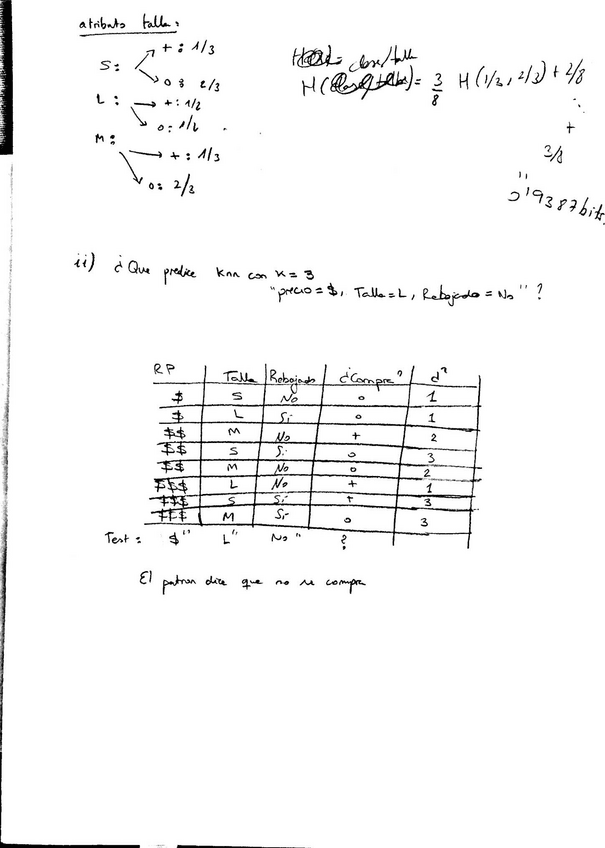 atributo talla:
S: + : 1/3
o : 2/3
L : + : 1/2
o : 1/2
M : + : 1/3
o : 2/3
clase/talla
H( ) = 3/8 H(1/3, 2/3) + 2/8
+
3/8
"
0'9387 bits.
ii) ¿Que predice knn con K = 3
"precio = $, Talla = L, Rebajado = No" ?
RP Talla Rebajado ¿Compra? d²
$ S No o 1
$ L Si o 1
$$ M No + 2
$$ S Si o 3
$$ M No o 2
$$$ L No + 1
$$$ S Si + 3
$$$ M Si o 3
Test = $" L" No" ?
El patron dice que no se compra